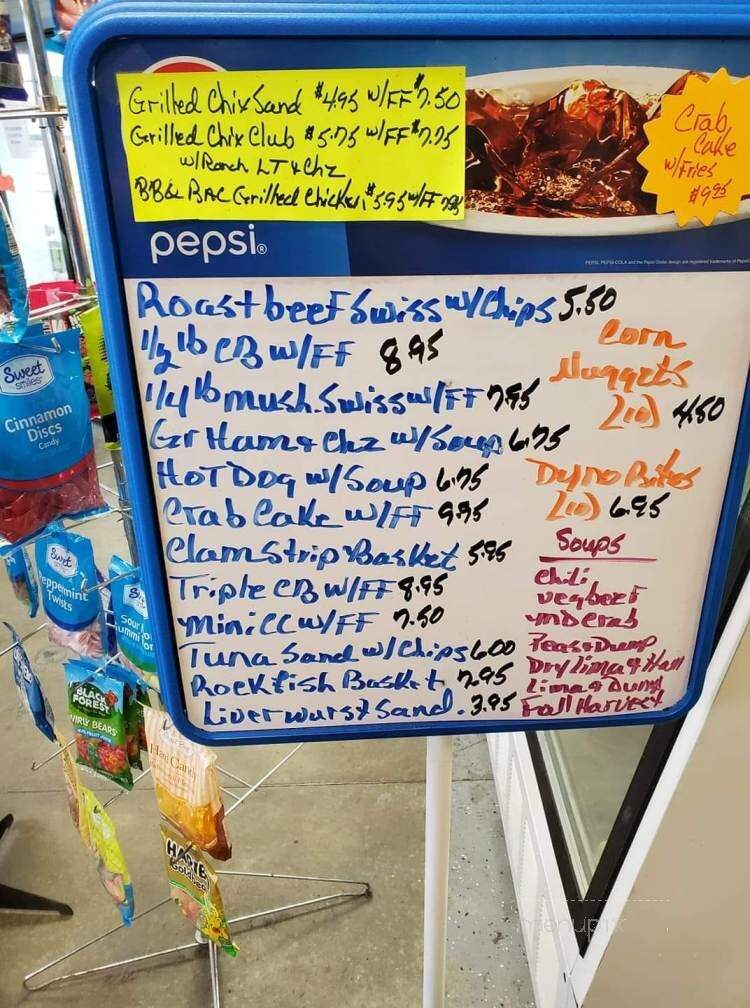 Grilled Chix Sand $4.95 w/FF $7.50
Grilled Chix Club $5.75 w/FF $7.75
w/Ranch LT & Chz
Grilled Chicken $5.95 w/FF
Crab
Cake
w/Fries
$9.95
pepsi®
Roast beef Swiss w/Chips 5.50
1/2 lb CB w/FF 8.95
1/4 lb mush. Swiss w/FF 7.95
Gr Ham & Chz w/Soup 6.75
HoT Dog w/Soup 6.75
Crab Cake w/FF 9.95
Clam Strip Basket 5.95
Triple CB w/FF 8.95
mini CC w/FF 7.50
Tuna Sand w/Chips 6.00
Rockfish Basket 7.95
Liverwurst Sand. 3.95
Corn
Nuggets
(10) 4.50
Dyno Bites
(10) 6.95
Soups
Chili
veg beef
md crab
Peas & Dump
Dry Lima & Ham
Lima & Dump
Fall Harvest
Sweet
smiles
Cinnamon
Discs
Candy
Sweet
Twists
Sour
BLACK
FOREST
BEARS
HARIB
Goldbea
menupix